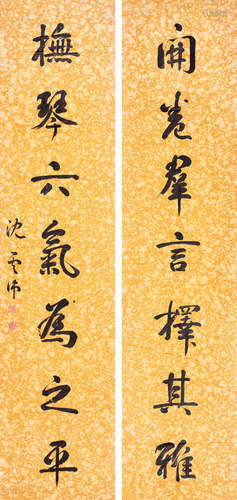 開卷羣言擇其雅
橅琴六氣為之平
沈雲沛